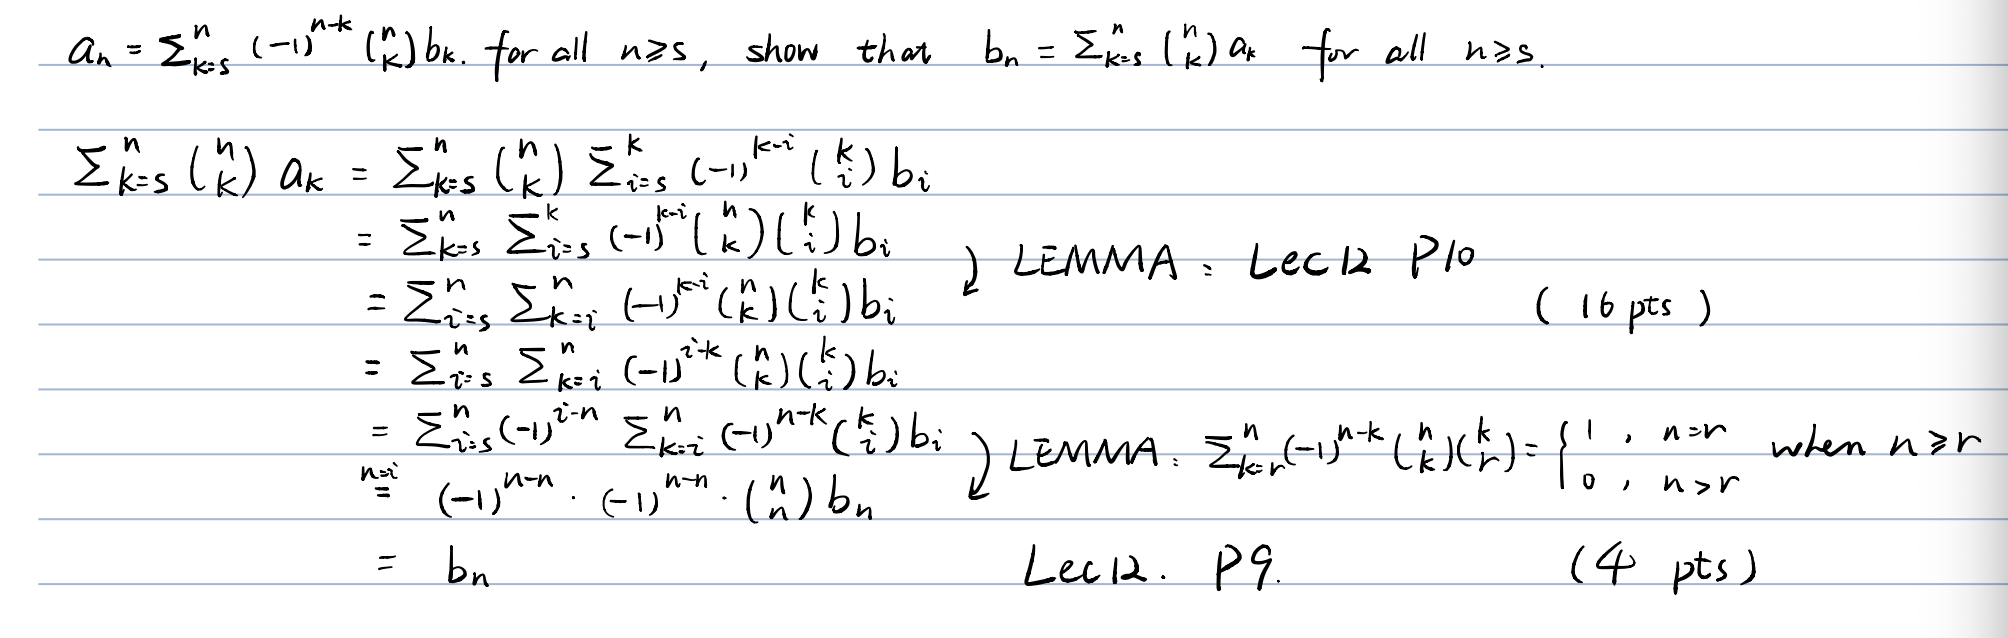 aₙ = Σₖ₌ₛⁿ (-1)ⁿ⁻ᵏ (n k) bₖ. for all n≥s, show that bₙ = Σₖ₌ₛⁿ (n k) aₖ for all n≥s.
Σₖ₌ₛⁿ (n k) aₖ = Σₖ₌ₛⁿ (n k) Σᵢ₌ₛᵏ (-1)ᵏ⁻ⁱ (k i) bᵢ
= Σₖ₌ₛⁿ Σᵢ₌ₛᵏ (-1)ᵏ⁻ⁱ (n k) (k i) bᵢ
LEMMA: Lec 12 P10
= Σᵢ₌ₛⁿ Σₖ₌ᵢⁿ (-1)ᵏ⁻ⁱ (n k) (k i) bᵢ
(16 pts)
= Σᵢ₌ₛⁿ Σₖ₌ᵢⁿ (-1)ⁱ⁻ᵏ (n k) (k i) bᵢ
= Σᵢ₌ₛⁿ (-1)ⁱ⁻ⁿ Σₖ₌ᵢⁿ (-1)ⁿ⁻ᵏ (k i) bᵢ
LEMMA: Σₖ₌ᵣⁿ (-1)ⁿ⁻ᵏ (n k) (k r) = { 1, n=r 0, n>r when n≥r
n=i = (-1)ⁿ⁻ⁿ · (-1)ⁿ⁻ⁿ · (n n) bₙ
= bₙ
Lec 12. P9.
(4 pts)